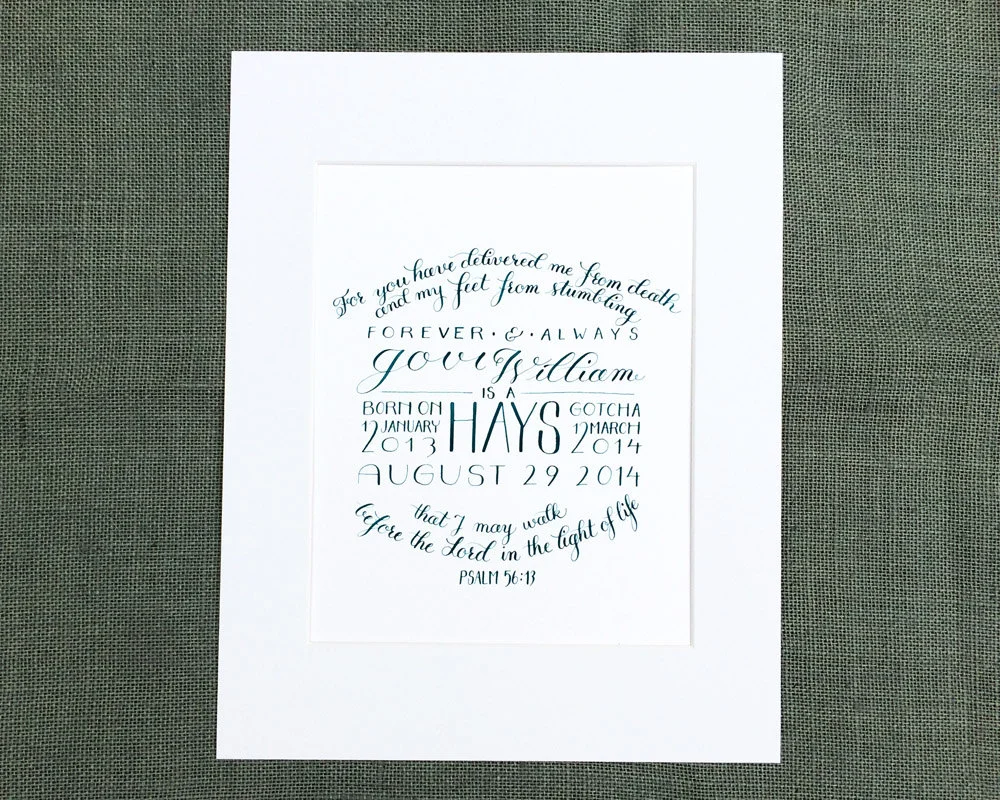 For you have delivered me from death
and my feet from stumbling
FOREVER · & · ALWAYS
Govi William
IS A
BORN ON
12 JANUARY
2013
HAYS
GOTCHA
12 MARCH
2014
AUGUST 29 2014
that I may walk
before the Lord in the light of life
PSALM 56:13